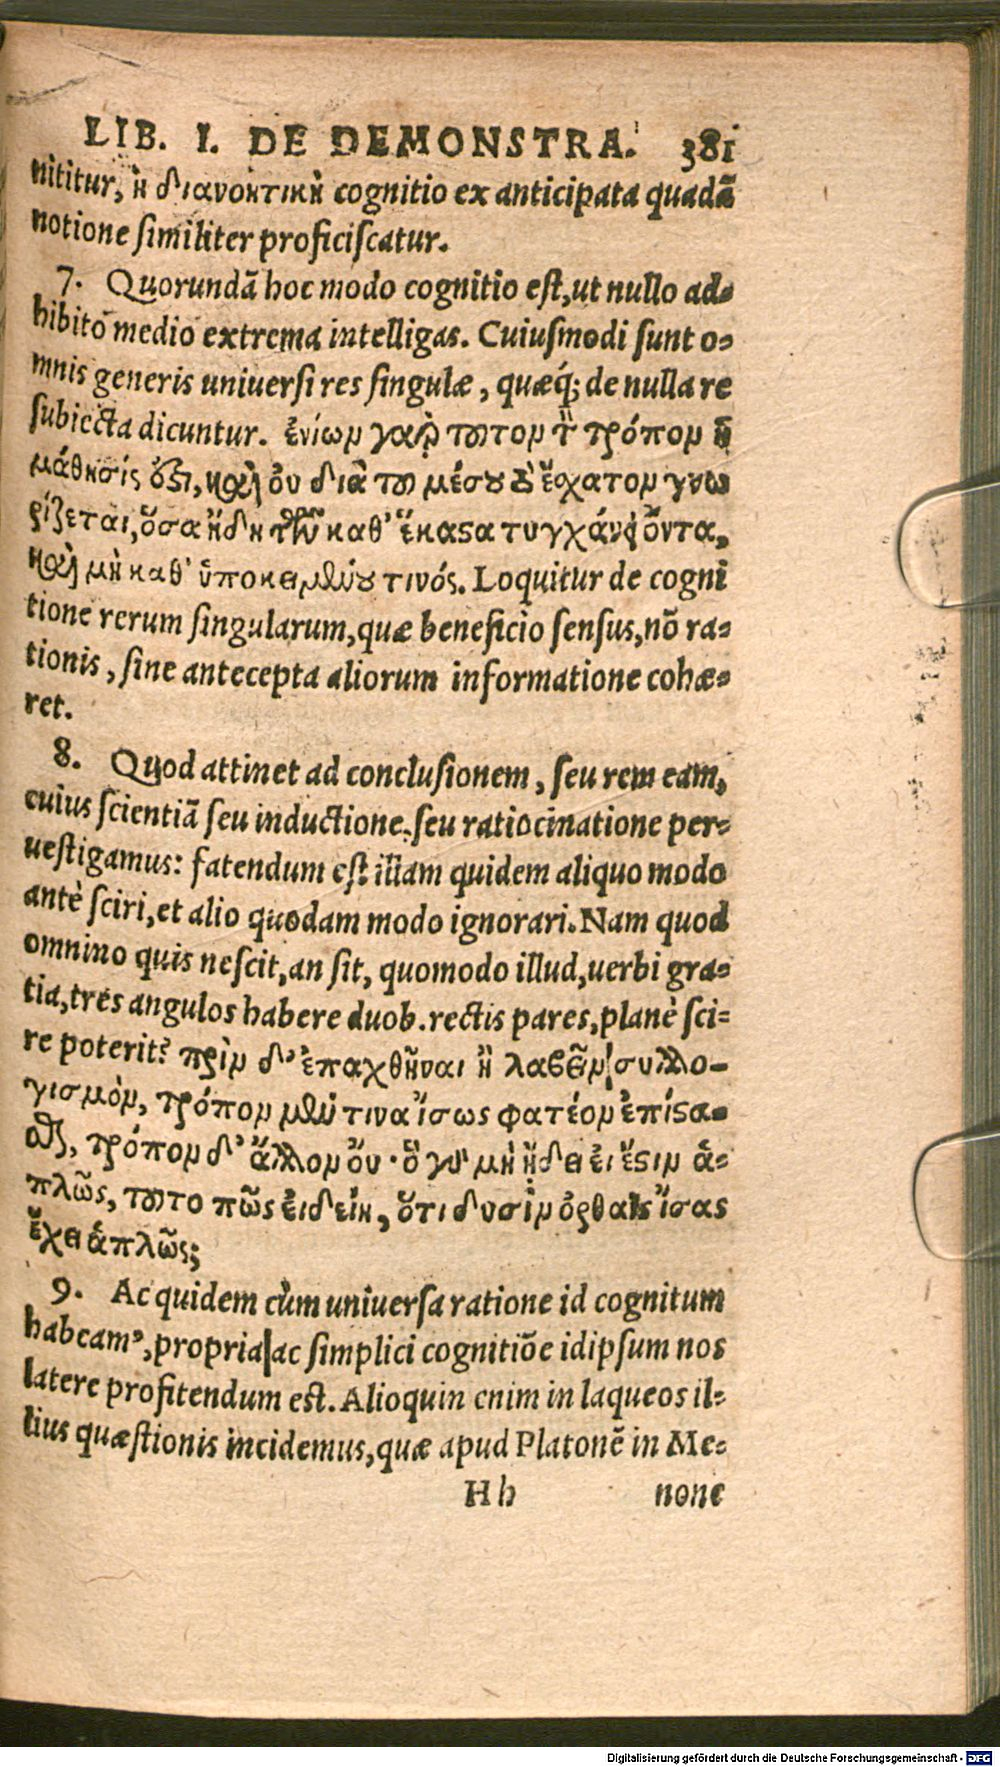 LIB. I. DE DEMONSTRA. 381
nititur, ἡ διανοητικὴ cognitio ex anticipata quadã
notione ſimiliter proficiſcatur.
7. Quorundã hoc modo cognitio eſt, ut nullo ad-
hibito medio extrema intelligas. Cuiuſmodi ſunt o-
mnis generis uniuerſi res ſingulæ, quæq́; de nulla re
ſubiecta dicuntur. ἐνίων γὰρ τοῦτον τὸν τρόπον ἡ
μάθησίς ἐστι, καὶ οὐ διὰ τοῦ μέσου τὸ ἔσχατον γνω
ρίζεται, ὅσα ἤδη τῶν καθ' ἕκαστα τυγχάνει ὄντα,
καὶ μὴ καθ' ὑποκειμένου τινός. Loquitur de cogni
tione rerum ſingularum, quæ beneficio ſenſus, nõ ra-
tionis, ſine antecepta aliorum informatione cohæ-
ret.
8. Quod attinet ad concluſionem, ſeu rem eam,
cuius ſcientiã ſeu inductione, ſeu ratiocinatione per-
ueſtigamus: fatendum eſt illam quidem aliquo modo
antè ſciri, et alio quodam modo ignorari. Nam quod
omnino quis neſcit, an ſit, quomodo illud, uerbi gra-
tia, tres angulos habere duob. rectis pares, planè ſci-
re poterit? πρὶν δ' ἐπαχθῆναι ἢ λαβεῖν συλλο-
γισμὸν, τρόπον μέν τινα ἴσως φατέον ἐπίστα-
σθαι, τρόπον δ' ἄλλον οὔ· ὃ γὰρ μὴ ᾔδει εἰ ἔστιν ἁ-
πλῶς, τοῦτο πῶς εἰδείη, ὅτι δυσὶν ὀρθαῖς ἴσας
ἔχει ἁπλῶς;
9. Ac quidem cùm uniuerſa ratione id cognitum
habeam⁹, propria ac ſimplici cognitiõe idipſum nos
latere profitendum eſt. Alioquin enim in laqueos il-
lius quæſtionis incidemus, quæ apud Platonẽ in Me-
Hh none
Digitalisierung gefördert durch die Deutsche Forschungsgemeinschaft - DFG